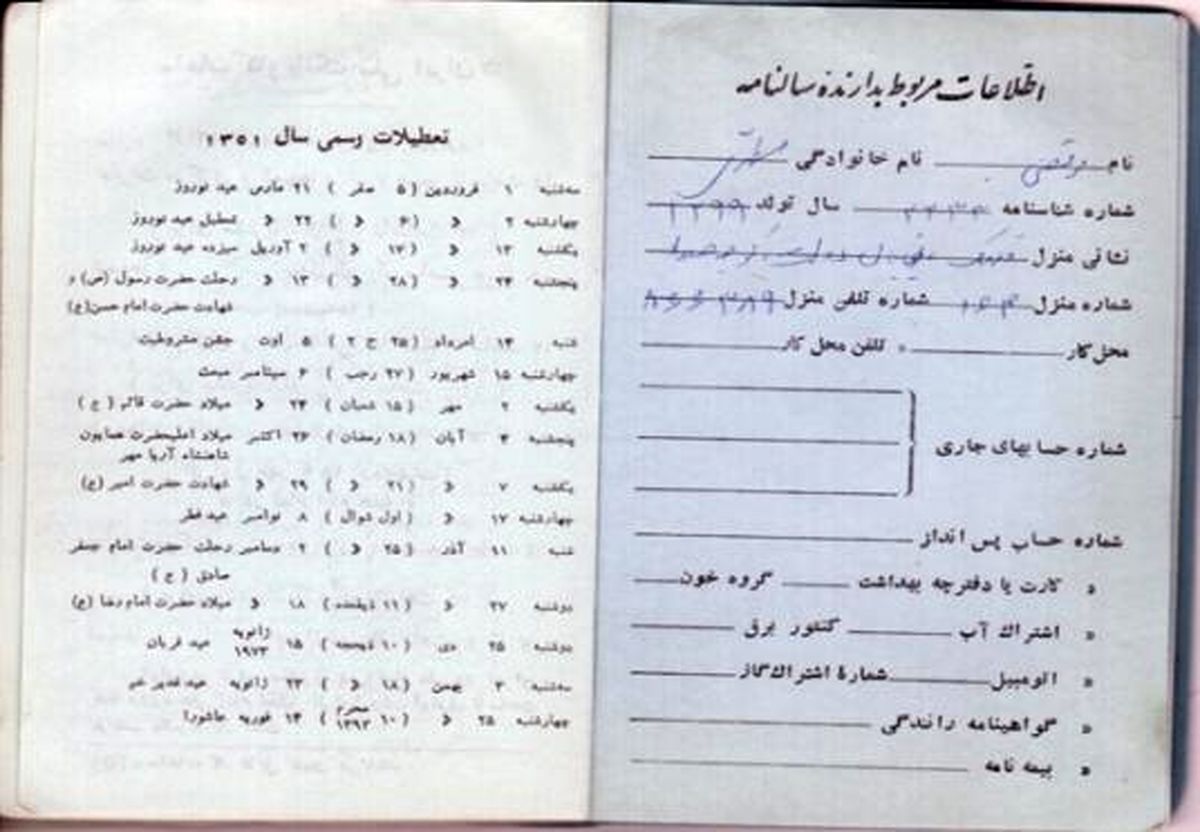 اطلاعات مربوط بدارندهٔ سالنامه
نام مرتضی نام خانوادگی مطهری
شماره شناسنامه سال تولد ۱۲۹۹
نشانی منزل
شماره منزل شماره تلفن منزل
محل کار تلفن محل کار
شماره حسابهای جاری
شماره حساب پس انداز
« کارت یا دفترچه بهداشت گروه خون
« اشتراك آب کنتور برق
« اتومبیل شمارهٔ اشتراك گاز
« گواهینامه رانندگی
« بیمه نامه
تعطیلات رسمی سال ۱۳۵۱
سه‌شنبه ۱ فروردین (۵ صفر) ۲۱ مارس عید نوروز
چهارشنبه ۲ « (۶ «) ۲۲ « تعطیل عید نوروز
یکشنبه ۱۳ « (۱۷ «) ۲ آوریل سیزده عید نوروز
پنجشنبه ۲۴ « (۲۸ «) ۱۳ « رحلت حضرت رسول (ص) و
شهادت حضرت امام حسن (ع)
شنبه ۱۴ امرداد (۲۵ ج ۲) ۵ اوت جشن مشروطیت
چهارشنبه ۱۵ شهریور (۲۷ رجب) ۶ سپتامبر مبعث
یکشنبه ۲ مهر (۱۵ شعبان) ۲۴ « میلاد حضرت قائم (ع)
پنجشنبه ۴ آبان (۱۸ رمضان) ۲۶ اکتبر میلاد اعلیحضرت همایون
شاهنشاه آریا مهر
یکشنبه ۷ « (۲۱ «) ۲۹ « شهادت حضرت امیر (ع)
چهارشنبه ۱۷ « (اول شوال) ۸ نوامبر عید فطر
شنبه ۱۱ آذر (۲۵ «) ۲ دسامبر رحلت حضرت امام جعفر
صادق (ع)
دوشنبه ۲۷ « (۱۱ ذیقعده) ۱۸ « میلاد حضرت امام رضا (ع)
دوشنبه ۲۵ دی (۱۰ ذیحجه) ۱۵ ژانویه ۱۹۷۳ عید قربان
سه‌شنبه ۳ بهمن (۱۸ «) ۲۳ ژانویه عید غدیر خم
چهارشنبه ۲۵ « (۱۰ محرم ۱۳۹۳) ۱۴ فوریه عاشورا